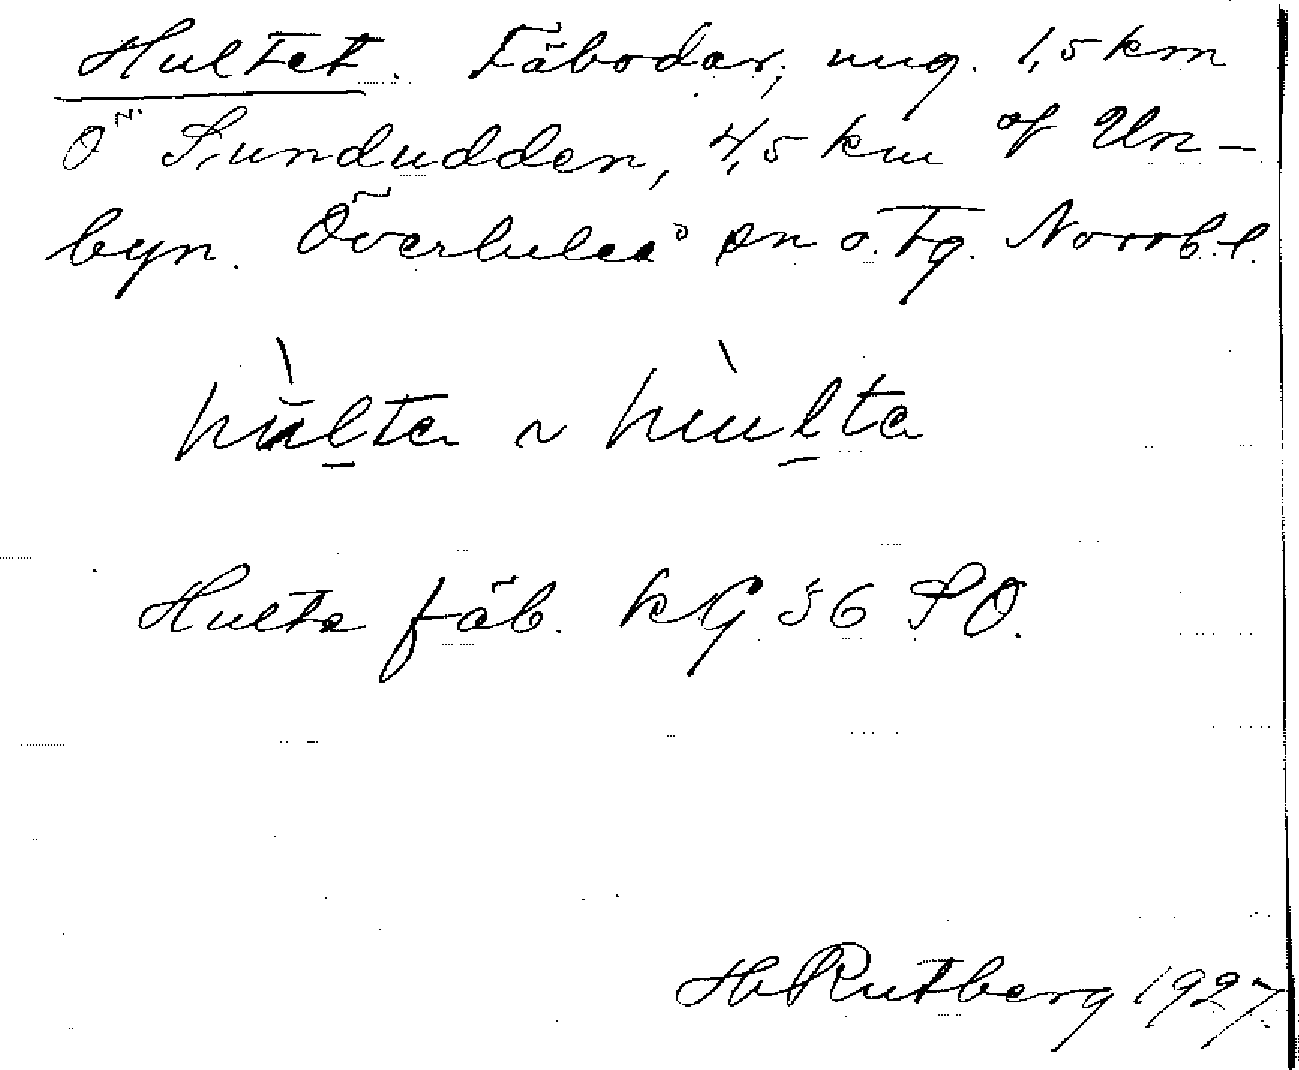 Hultet. Fäbodar, ung. 1,5 km
O Sundudden, 4,5 km af Un-
byn. Överluleå sn o. tg. Norrb. l.
hu̇lta ~ huulta
Hulta fäb. KG 56 SO.
H Rutberg 1927.